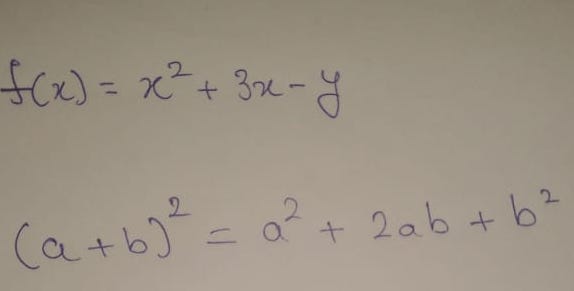 f(x) = x² + 3x - y
(a + b)² = a² + 2ab + b²